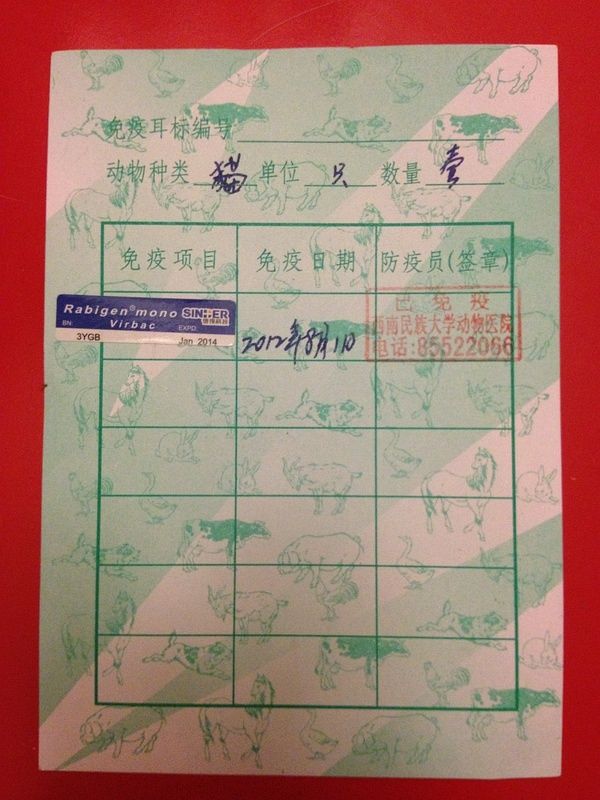 免疫耳标编号
动物种类 猫 单位 只 数量 壹
免疫项目 免疫日期 防疫员(签章)
Rabigen® mono SINDER
Virbac
BN: EXPD:
3YGB Jan 2014
2012年8月1日
已免疫
西南民族大学动物医院
电话:85522066